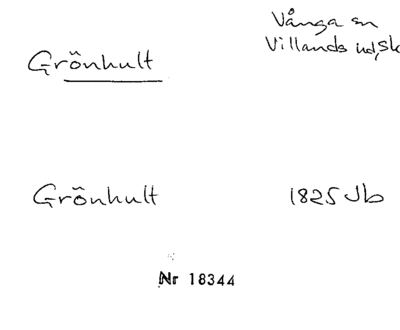 Vånga sn
Grönhult
Villands hd, Sk
Grönhult 1825 Jb
Nr 18344